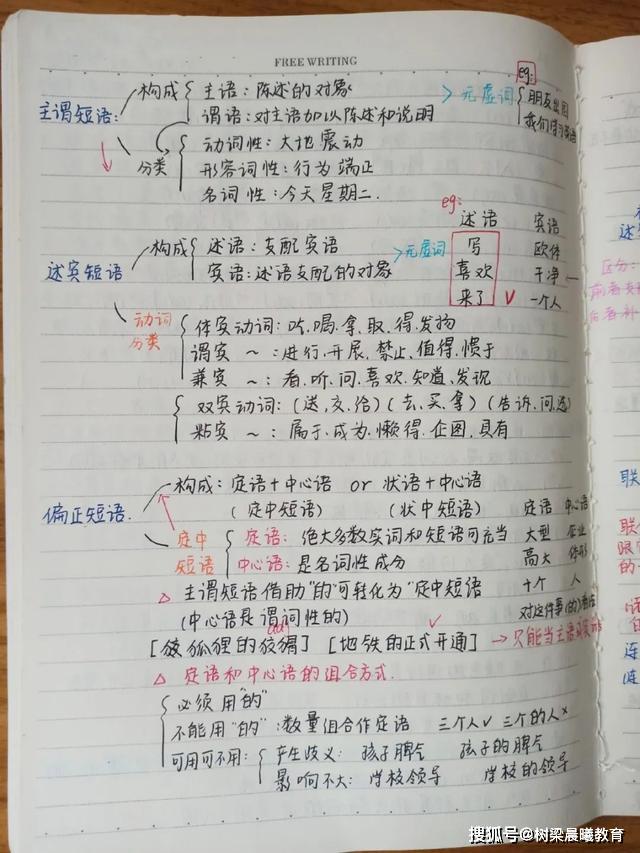 FREE WRITING
eg:
构成 主语：陈述的对象 >无虚词 朋友出国
主谓短语： 谓语：对主语加以陈述和说明 我们学习英语
动词性：大地震动
分类 形容词性：行为端正
名词性：今天星期二.
eg: 述语 宾语
构成 述语：支配宾语 >无虚词 写 欧体
述宾短语 宾语：述语支配的对象 喜欢 干净
来了 ✓ 一个人
动词 体宾动词：吃、喝、拿、取、得、发扬
分类 谓宾 ～：进行、开展、禁止、值得、惯于
兼宾 ～：看、听、问、喜欢、知道、发现
双宾动词：(送、交、给)(去、买、拿)(告诉、问、
粘宾 ～：属于、成为、懒得、企图、具有
构成：定语+中心语 or 状语+中心语
偏正短语. (定中短语) (状中短语) 定语 中心语
定中 定语：绝大多数实词和短语可充当 大型 企业
短语 中心语：是名词性成分 高大
△ 主谓短语借助"的"可转化为"定中短语 十个 人
(中心语是谓词性的) 对这件事(的)看法
adj ✓
[狐狸的狡猾] [地铁的正式开通] →只能当主语
△ 定语和中心语的组合方式.
必须用"的"
不能用"的"：数量组合作定语 三个人✓ 三个的人×
可用可不用： 产生歧义：孩子脾气 孩子的脾气
影响不大：学校领导 学校的领导
区分：
联
连
搜狐号@树梁晨曦教育